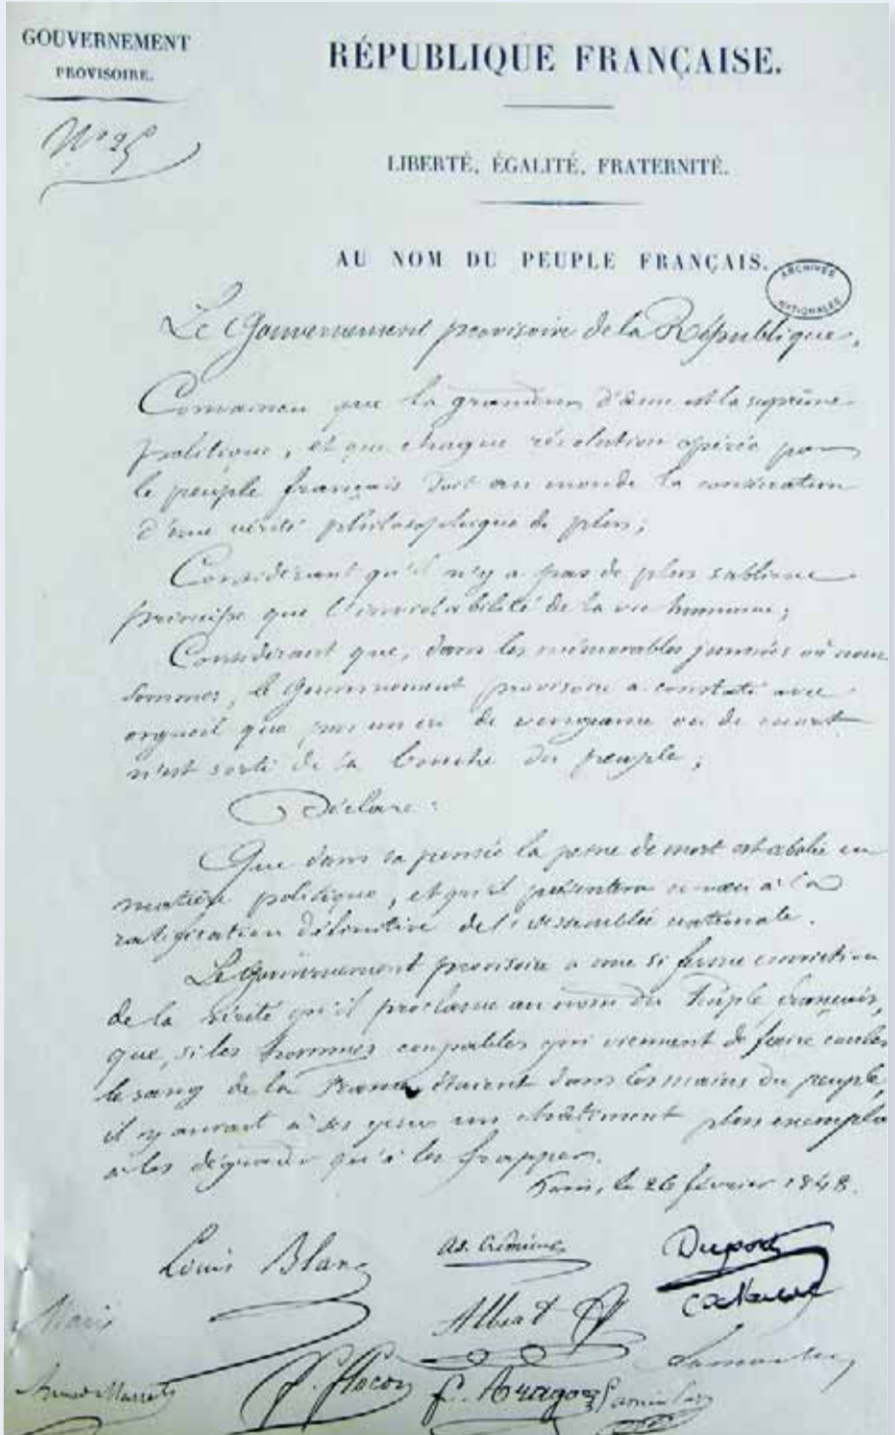 GOUVERNEMENT
PROVISOIRE.
N° 25
RÉPUBLIQUE FRANÇAISE.
LIBERTÉ, ÉGALITÉ, FRATERNITÉ.
AU NOM DU PEUPLE FRANÇAIS.
ARCHIVES
NATIONALES
Le Gouvernement provisoire de la République,
Convaincu que la grandeur d'âme est la suprême
politique, et que chaque révolution opérée par
le peuple français doit au monde la consécration
d'une vérité philosophique de plus;
Considérant qu'il n'y a pas de plus sublime
principe que l'inviolabilité de la vie humaine;
Considérant que, dans les mémorables journées où nous
sommes, le Gouvernement provisoire a constaté avec
orgueil que pas un cri de vengeance ou de mort
n'est sorti de la bouche du peuple;
Déclare:
Que dans sa pensée la peine de mort est abolie en
matière politique, et qu'il présentera ce vœu à la
ratification définitive de l'Assemblée nationale.
Le Gouvernement provisoire a une si ferme conviction
de la vérité qu'il proclame au nom du Peuple français,
que, si les hommes coupables qui viennent de faire couler
le sang de la France étaient dans les mains du peuple,
il y aurait à ses yeux un châtiment plus exempla
à les dégrader qu'à les frapper.
Paris, le 26 février 1848.
Louis Blanc
Ad. Crémieux
Dupont
Marie
Albert
Lamartine
Armand Marrast
F. Flocon
F. Arago